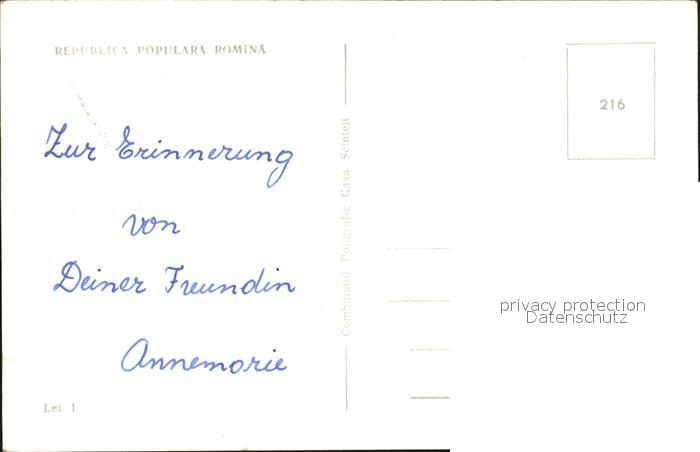 REPUBLICA POPULARĂ ROMÎNĂ
216
Zur Erinnerung
von
Deiner Freundin
Annemarie
Combinatul Poligrafic Casa Scînteii
privacy protection
Datenschutz
Lei 1